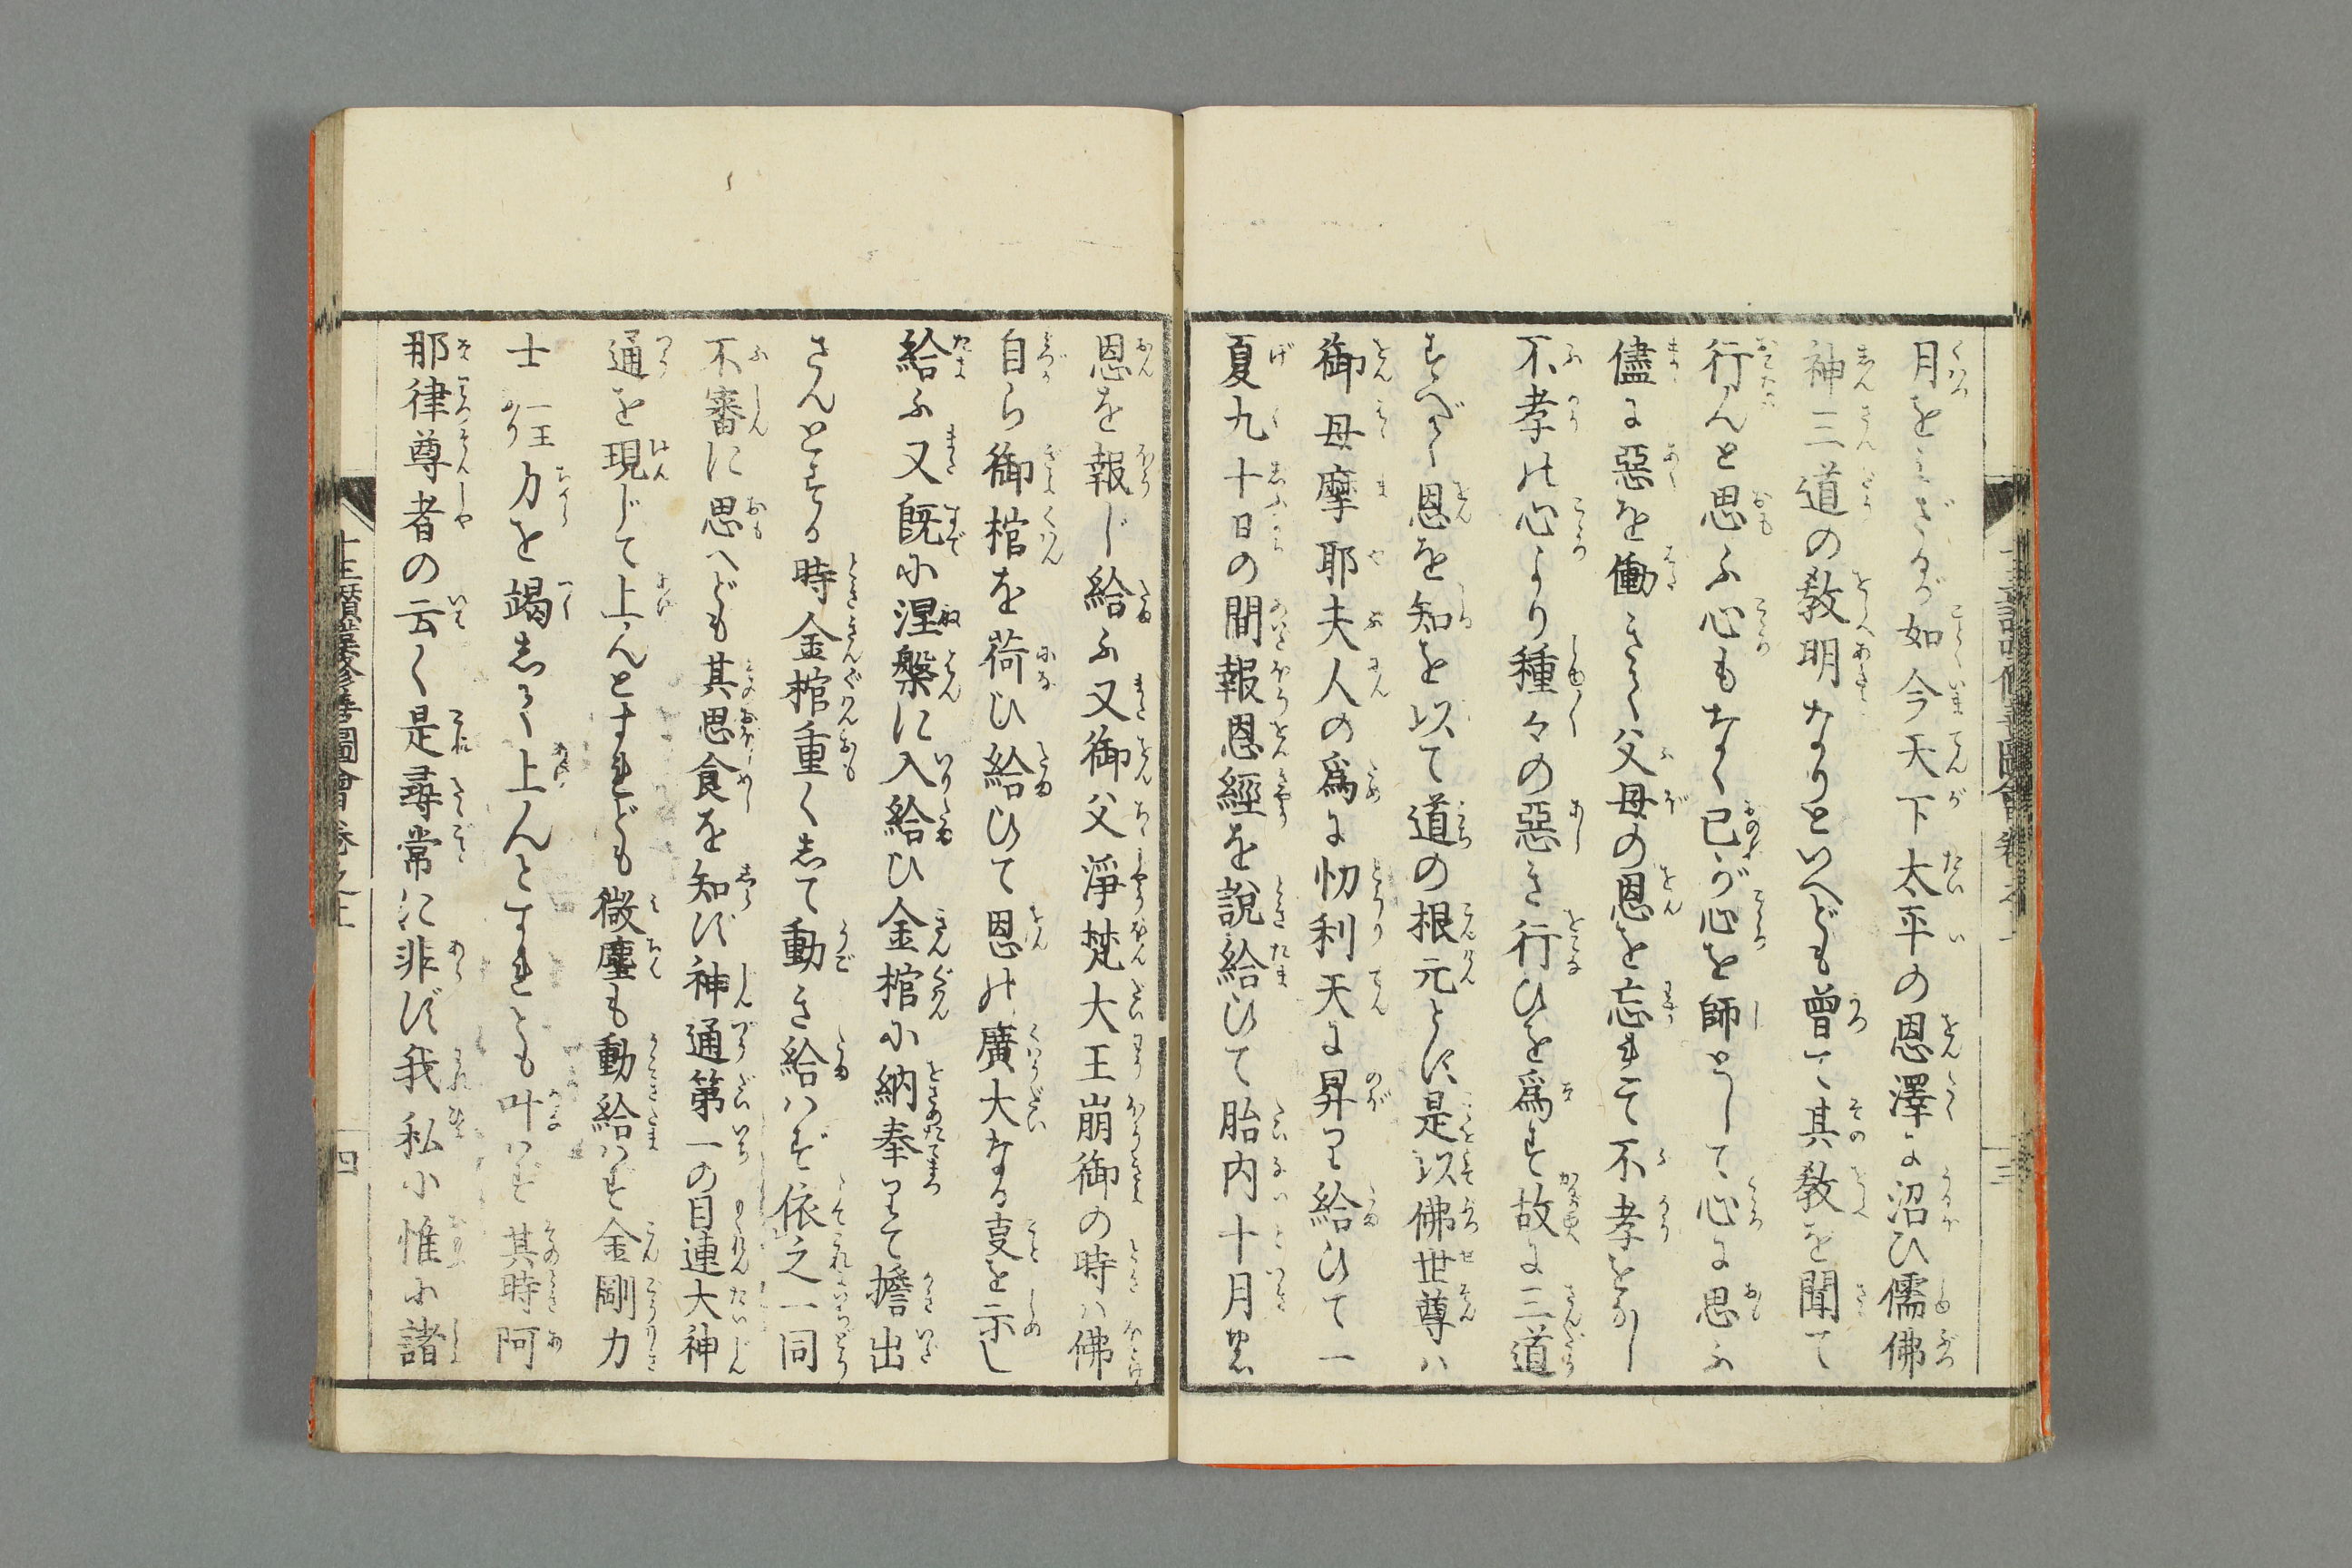 月をミざるが如今天下太平の恩澤に沼ひ儒佛
神三道の教明なりといへども曾て其教を聞て
行んと思ふ心もなく已が心を師として心に思ふ
儘に惡を働きよく父母の恩を忘れて不孝をなし
不孝の心より種々の惡き行ひを爲す故に三道
すべて恩を知を以て道の根元とす是以佛世尊ハ
御母摩耶夫人の爲に忉利天に昇り給ひて一
夏九十日の間報恩經を説給ひて胎内十月の
恩を報じ給ふ又御父淨梵大王崩御の時ハ佛
自ら御棺を荷ひ給ひて恩の廣大なる事を示し
給ふ又既に涅槃に入給ひ金棺に納奉りて擔出
さんとする時金棺重くして動き給ハず依之一同
不審に思へども其思食を知ず神通第一の目連大神
通を現じて上んとすれども微塵も動給ハず金剛力
士二王力を竭しよく上んとすれども叶ハず其時阿
那律尊者の云く是尋常に非ず我私に惟に諸
十王讃歎修善圖會卷之上
三
四